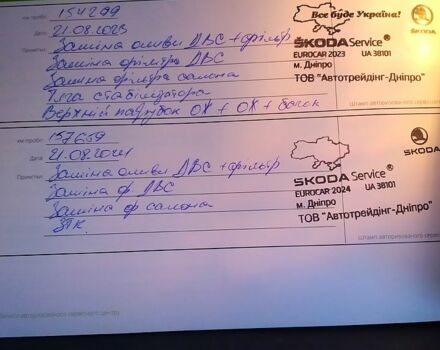 км пробіг 154299
Дата 21.08.2023
Примітки Заміна оливи ДВС + фільтр
Заміна фільтра ДВС
Заміна фільтра салона
Тяга стабілізатора
Верхній патрубок ОХ + ОХ + бачок
Все буде Україна!
ŠKODA Service®
EUROCAR 2023 UA 38101
м. Дніпро
ТОВ "Автотрейдінг-Дніпро"
Штамп авторизованого сервісного
км пробіг 157659
Дата 21.08.2024
Примітки Заміна оливи ДВС + фільтр
Заміна ф. ДВС
Заміна ф салона
ŠKODA Service®
EUROCAR 2024 UA 38101
м. Дніпро
ТОВ "Автотрейдінг-Дніпро"
ŠKODA
Штамп авторизованого сервісного
авторизованого сервісного центру